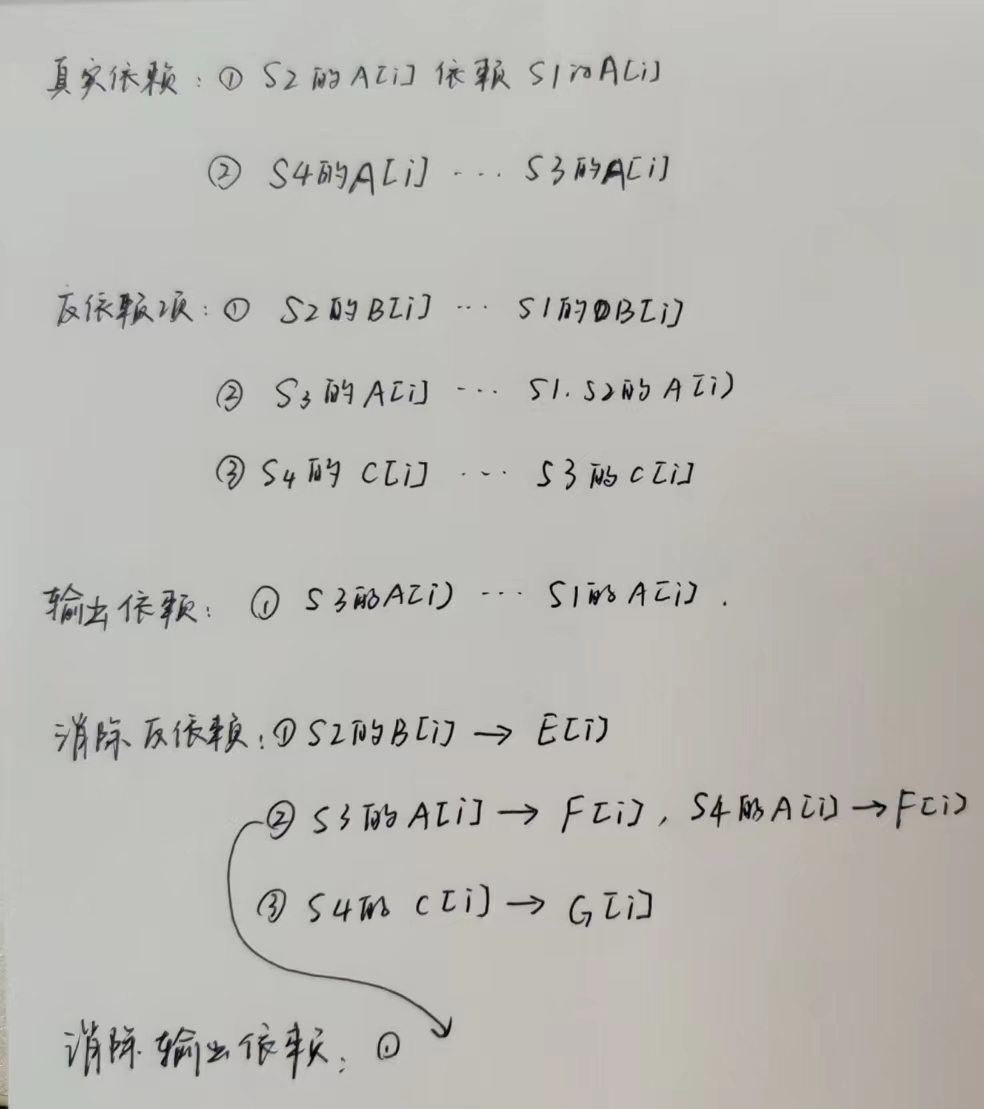 真实依赖：① S2的A[i] 依赖 S1的A[i]
② S4的A[i] ··· S3的A[i]
反依赖项：① S2的B[i] ··· S1的B[i]
② S3的A[i] ··· S1.S2的A[i)
③ S4的C[i] ··· S3的C[i]
输出依赖：① S3的A[i) ··· S1的A[i].
消除反依赖：① S2的B[i] → E[i]
② S3的A[i] → F[i], S4的A[i] → F[i]
③ S4的C[i] → G[i]
消除输出依赖：①